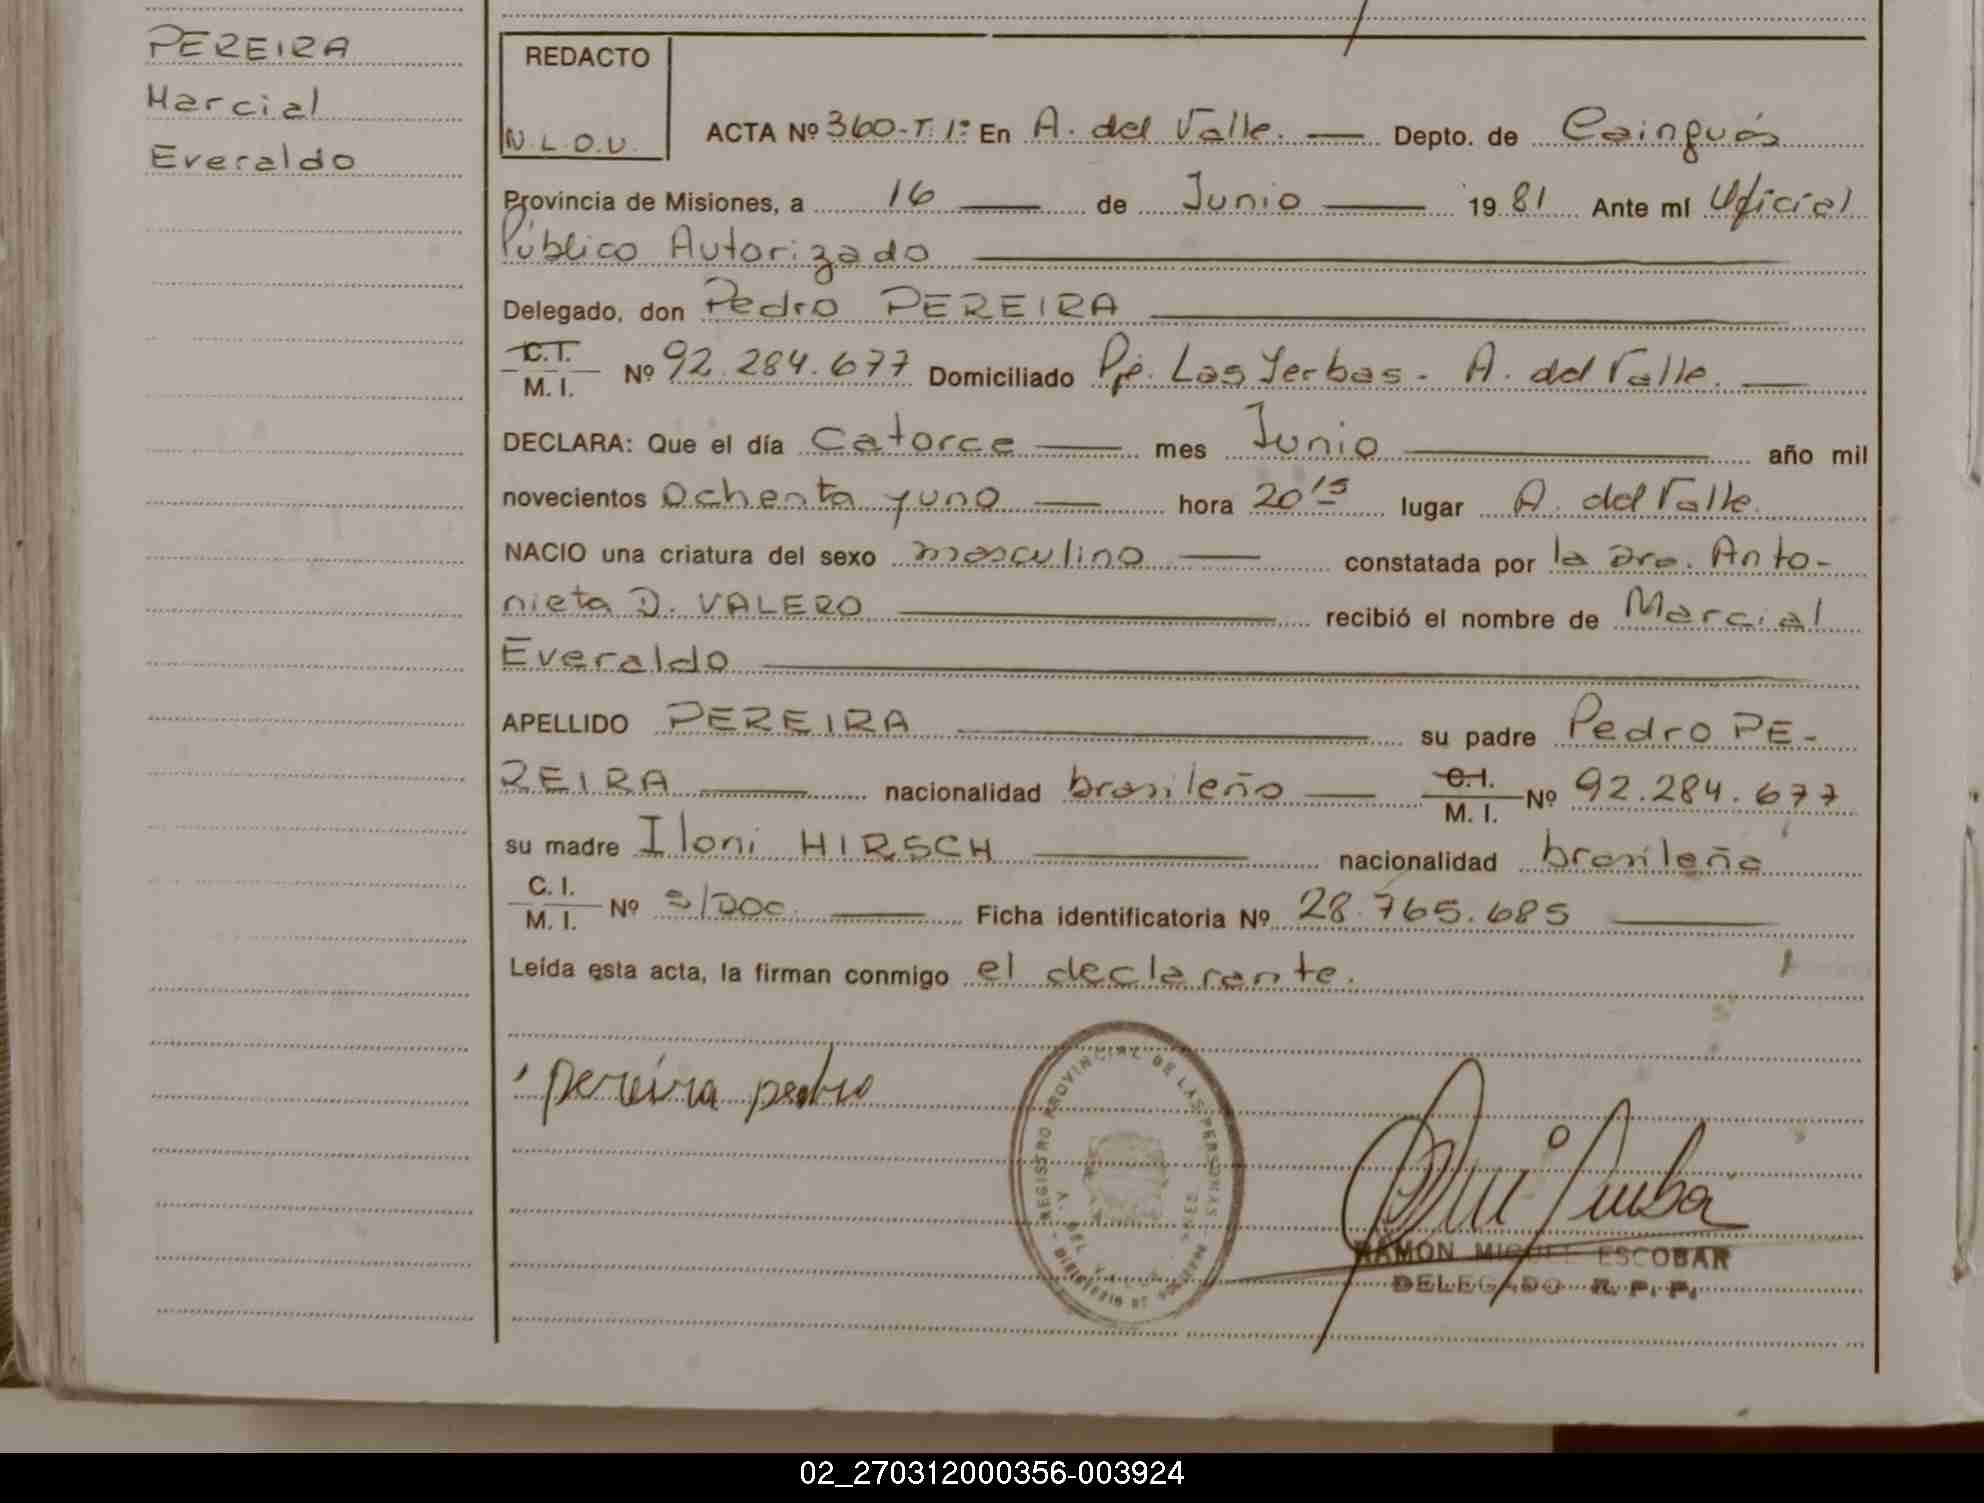 PEREIRA
Marcial
Everaldo
REDACTO
N.L.O.U.
ACTA Nº 360-T.1º En A. del Valle. Depto. de Cainguás
Provincia de Misiones, a 16 de Junio 1981 Ante mí Oficial
Público Autorizado
Delegado, don Pedro PEREIRA
C.I. M.I. Nº 92.284.677 Domiciliado Pje. Las Yerbas - A. del Valle.
DECLARA: Que el día Catorce mes Junio año mil
novecientos Ochenta y uno hora 20 15 lugar A. del Valle.
NACIO una criatura del sexo masculino constatada por la Dra. Anto-
nieta D. VALERO recibió el nombre de Marcial
Everaldo
APELLIDO PEREIRA su padre Pedro PE-
REIRA nacionalidad brasileño C.I. M.I. Nº 92.284.677
su madre Iloni HIRSCH nacionalidad brasileña
C.I. M.I. Nº s/Doc. Ficha identificatoria Nº 28.765.685
Leída esta acta, la firman conmigo el declarante.
pereira pedro
REGISTRO PROVINCIAL DE LAS PERSONAS
A. DEL VALLE
RAMON MIGUEL ESCOBAR
DELEGADO R.P.P.
02_270312000356-003924